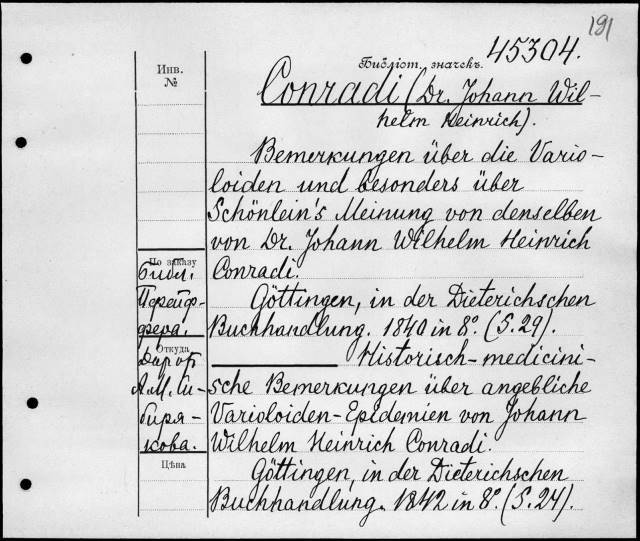 191
Библіот. значекъ. 45304.
Инв.
№
Conradi (Dr. Johann Wil-
helm Heinrich).
Bemerkungen über die Vario-
loiden und besonders über
Schönlein's Meinung von denselben
von Dr. Johann Wilhelm Heinrich
Conradi.
Göttingen, in der Dieterichschen
Buchhandlung. 1840 in 8º. (S. 29).
Historisch-medicini-
sche Bemerkungen über angebliche
Varioloiden-Epidemien von Johann
Wilhelm Heinrich Conradi.
Göttingen, in der Dieterichschen
Buchhandlung. 1842 in 8º. (S. 24).
По заказу
Библ.
Пфейф-
фера.
Откуда
Даръ
А. М. Си-
биря-
кова.
Цѣна